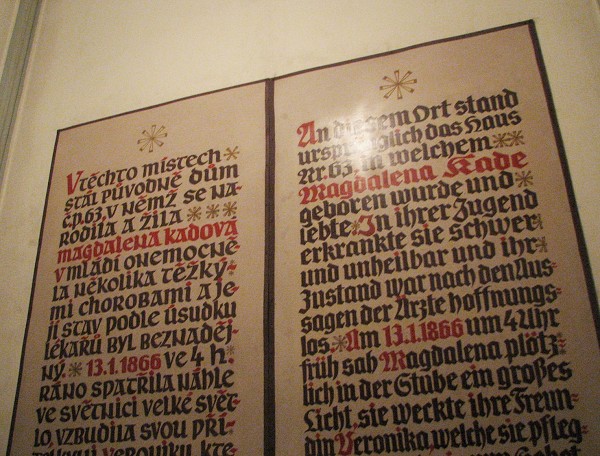 V těchto místech
stál původně dům
čp. 63, v němž se na-
rodila a žila
Magdalena Kadova
v mládí onemocně-
la několika těžký-
mi chorobami a je-
jí stav podle úsudku
lékařů byl beznaděj-
ný. 13.1.1866 ve 4 h.
ráno spatřila náhle
ve světnici velké svět-
lo, vzbudila svou pří-
telkyni Veroniku, kte-
An diesem Ort stand
ursprünglich das Haus
Nr. 63, in welchem
Magdalena Kade
geboren wurde und
lebte. In ihrer Jugend
erkrankte sie schwer
und unheilbar und ihr
Zustand war nach den Aus-
sagen der Ärzte hoffnungs-
los. Am 13.1.1866 um 4 Uhr
früh sah Magdalena plötz-
lich in der Stube ein großes
Licht, sie weckte ihre Freun-
din Veronika, welche sie pfleg-